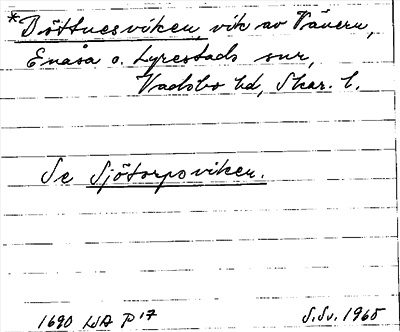 *Böttnesviken, vik av Vänern,
Enåsa o. Lyrestads snr,
Vadsbo hd, Skar. l.
Se Sjötorpsviken.
1690 LSA P 17 S.Sv. 1965